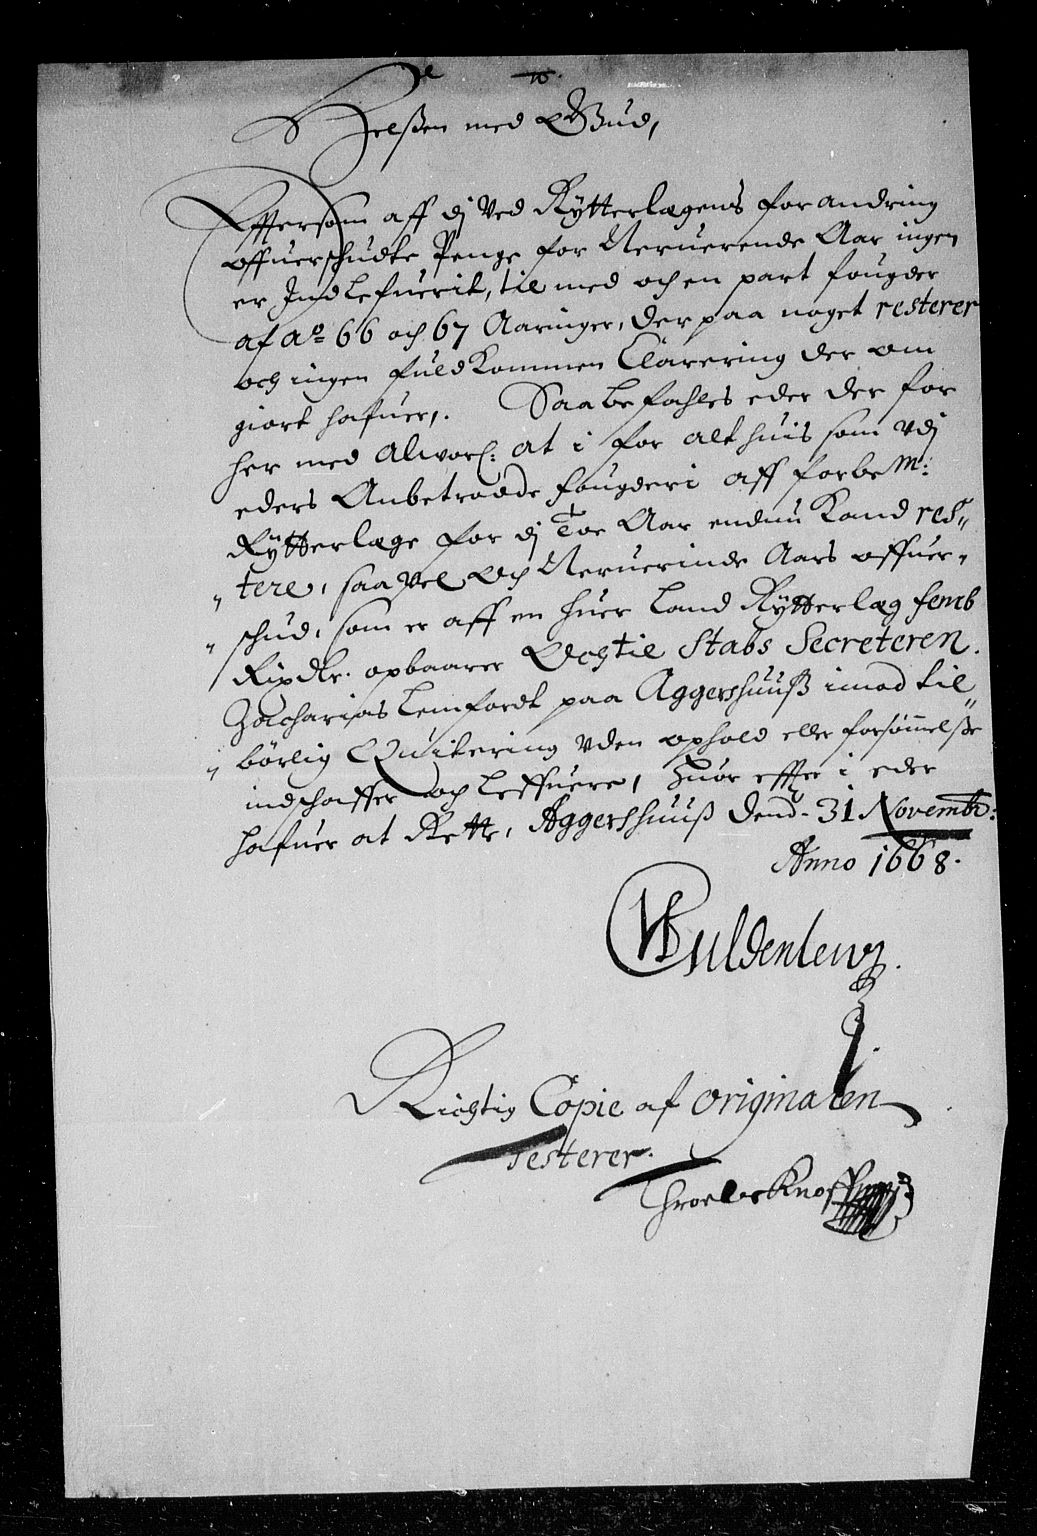 Helßen med Gud,
Efftersom aff dj ved Rytterlægens forandring
offuerschudte Penge for Neruerende Aar ingen
er Indlefuerit, til med och en part fougder
af a° 66 och 67 Aaringer, der paa noget resterer
och ingen fuldkommen Clarering der om
giort hafuer,. Saa befahles eder der for
her med Alvorl: at i for alt huis som vdj
eders Anbetroede fougderi aff forbem:
Rytterlæge for dj Toe Aar endnu kand res„
„ tere, saa vel och Neruerinde Aars offuer„
„ schud, som er aff en huer Land Rytterlæg femb
Rixdlr. opbaarer Och til Stabs Secreteren.
Zacharias Lemfordt paa Aggershuuß imod til„
„ börlig Quitering vden ophold eller forsömmelße
indschaffer och leffuere, Huor effter i eder
hafuer at Rette, Aggershuuß Dend. 31 Novemb:
Anno 1668.
Guldenlew.
Richtig Copie af originalen
testerer.
Throels Knoff